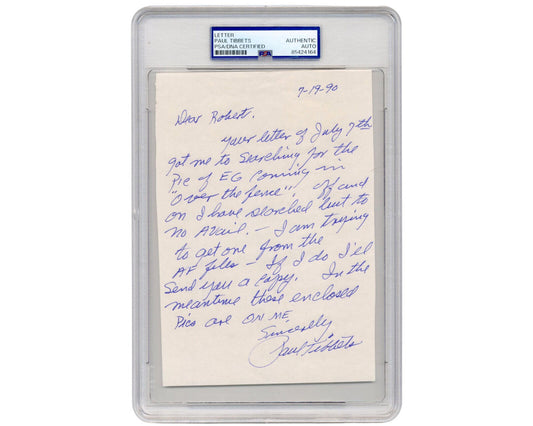 LETTER
PAUL TIBBETS
PSA/DNA CERTIFIED
AUTHENTIC
AUTO
85424164
PSA
7-19-90
Dear Robert,
Your letter of July 7th
got me to searching for the
Pic of EG coming in
"over the fence". Off and
on I have searched but to
no avail. - I am trying
to get one from the
AF files - If I do I'll
send you a copy. In the
meantime these enclosed
Pics are ON ME
Sincerely
Paul Tibbets